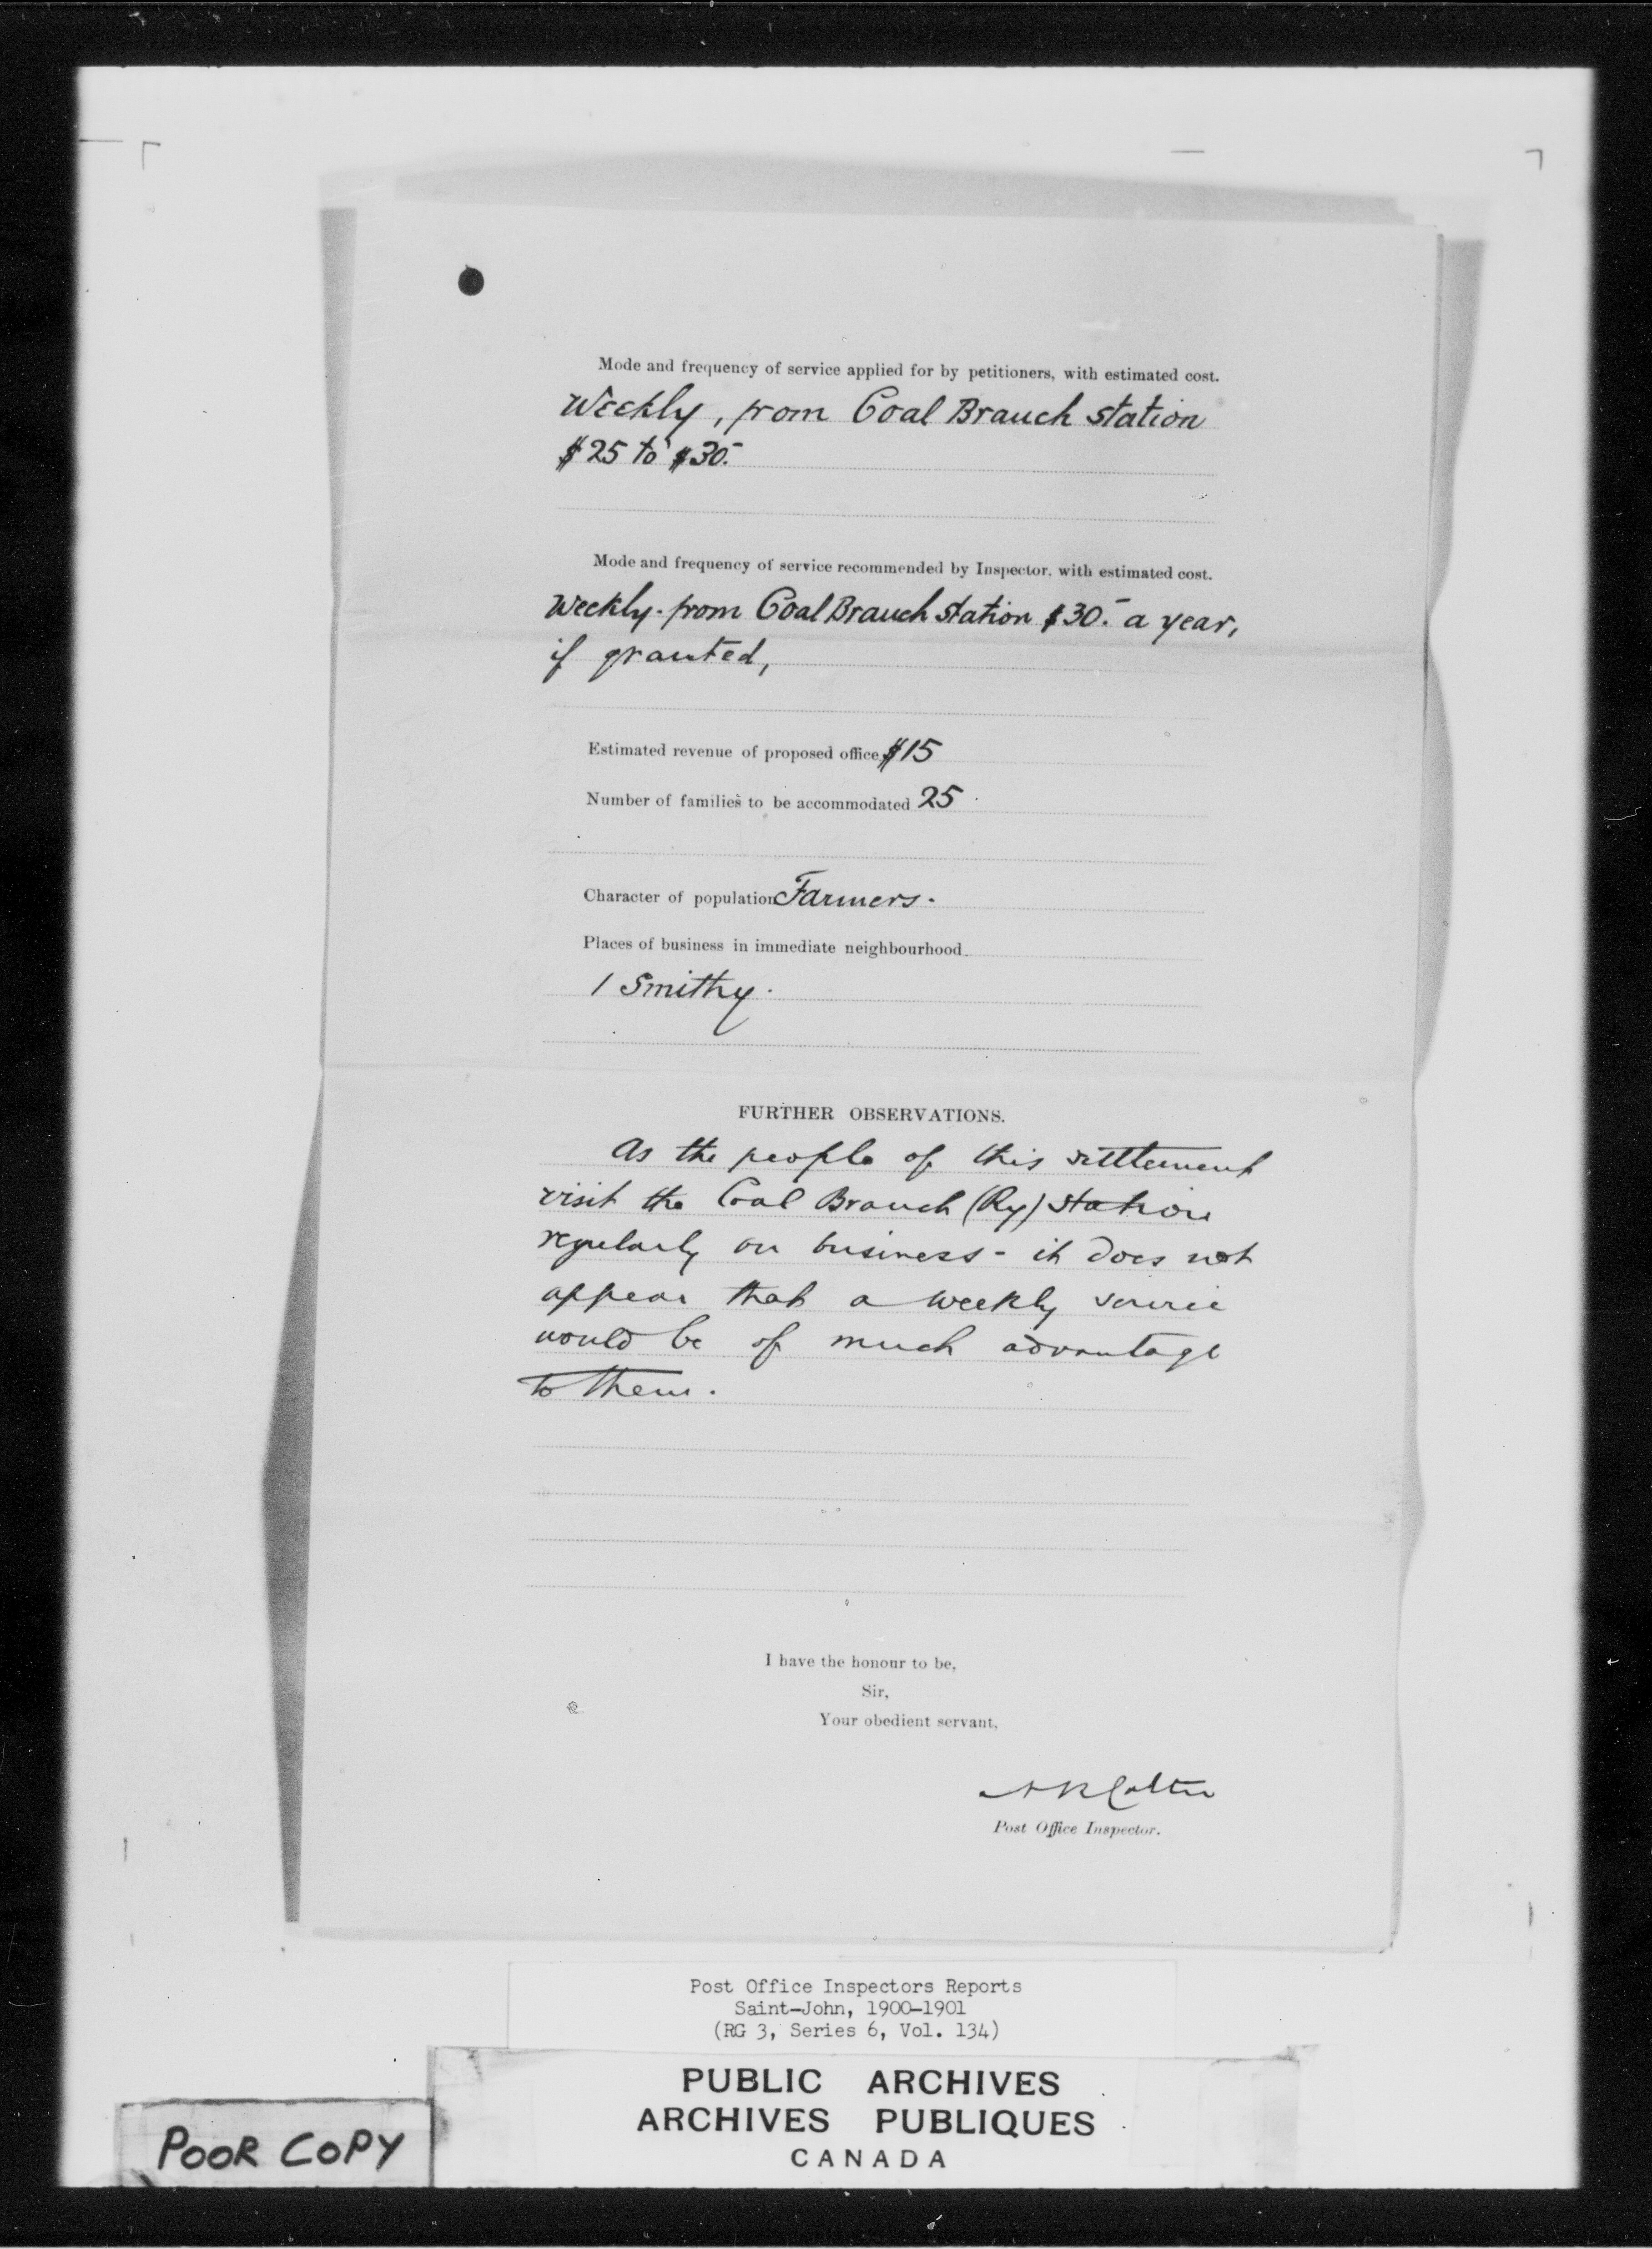 Mode and frequency of service applied for by petitioners, with estimated cost.
Weekly, from Coal Branch station
$25 to $30.-
Mode and frequency of service recommended by Inspector, with estimated cost.
Weekly. from Coal Branch station $30.- a year,
if granted,
Estimated revenue of proposed office $15
Number of families to be accommodated 25
Character of population Farmers.
Places of business in immediate neighbourhood
1 Smithy.
FURTHER OBSERVATIONS.
As the people of this settlement
visit the Coal Branch (Ry) station
regularly on business - it does not
appear that a weekly service
would be of much advantage
to them.
I have the honour to be,
Sir,
Your obedient servant,
Colter
Post Office Inspector.
Post Office Inspectors Reports
Saint-John, 1900-1901
(RG 3, Series 6, Vol. 134)
PUBLIC ARCHIVES
ARCHIVES PUBLIQUES
CANADA
POOR COPY